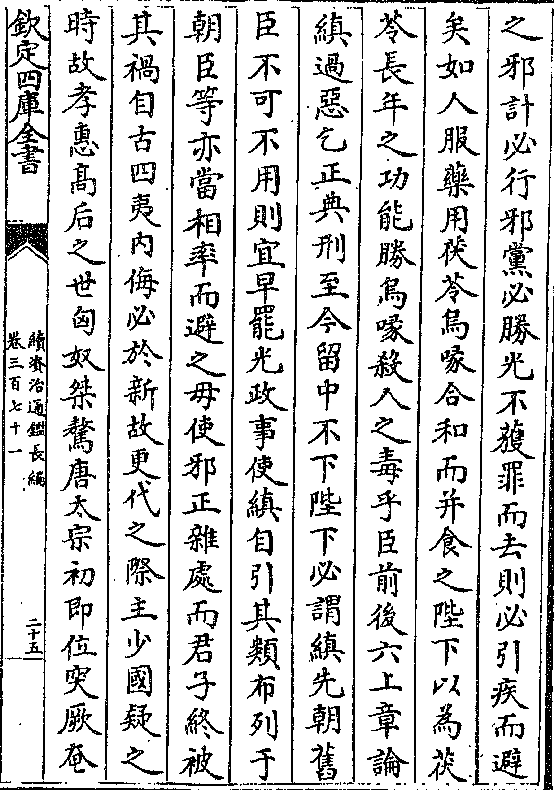 之邪計必行邪黨必勝光不獲罪而去則必引疾而避
矣如人服藥用茯苓烏喙合和而并食之陛下以為茯
苓長年之功能勝烏喙殺人之毒乎臣前後六上章論
縝過惡乞正典刑至今留中不下陛下必謂縝先朝舊
臣不可不用則宜早罷光政事使縝自引其類布列于
朝臣等亦當相率而避之毋使邪正雜處而君子終被
其禍自古四夷内侮必於新故更代之際主少國疑之
時故孝惠髙后之世匈奴桀驁唐太宗初即位突厥奄
欽定四庫全書
續資治通鑑長編
卷三百七十一
二十五